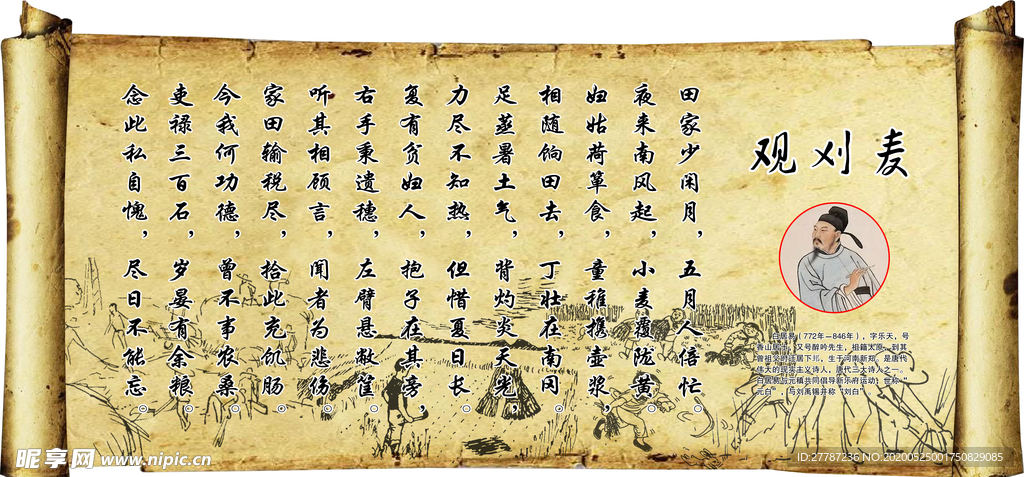 观刈麦
田家少闲月，五月人倍忙。
夜来南风起，小麦覆陇黄。
妇姑荷箪食，童稚携壶浆，
相随饷田去，丁壮在南冈。
足蒸暑土气，背灼炎天光，
力尽不知热，但惜夏日长。
复有贫妇人，抱子在其旁，
右手秉遗穗，左臂悬敝筐。
听其相顾言，闻者为悲伤。
家田输税尽，拾此充饥肠。
今我何功德，曾不事农桑。
吏禄三百石，岁晏有余粮。
念此私自愧，尽日不能忘。
白居易（772年－846年），字乐天，号
香山居士，又号醉吟先生，祖籍太原，到其
曾祖父时迁居下邽，生于河南新郑。是唐代
伟大的现实主义诗人，唐代三大诗人之一。
白居易与元稹共同倡导新乐府运动，世称“
元白”，与刘禹锡并称“刘白”。
昵享网 www.nipic.cn
ID:27787236 NO:20200525001750829085